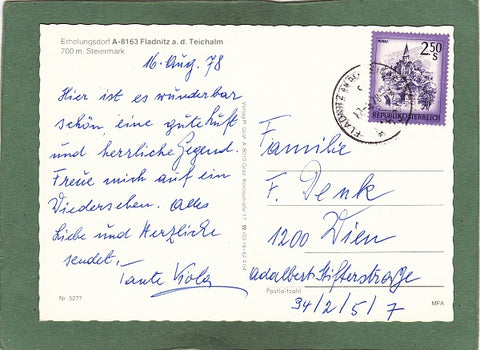 Erholungsdorf A-8163 Fladnitz a. d. Teichalm
700 m, Steiermark
16. Aug. 78
Hier ist es wunderbar
schön, eine gute Luft
und herrliche Gegend.
Freue mich auf ein
Wiedersehen. Alles
Liebe und Herzliche
sendet,
Tante Viola
Nr. 5277
2.50
S
REPUBLIK ÖSTERREICH
FLADNITZ
Familie
F. Denk
1200 Wien
Adalbert Stifterstraße
Postleitzahl
34/2/5/7
MFA